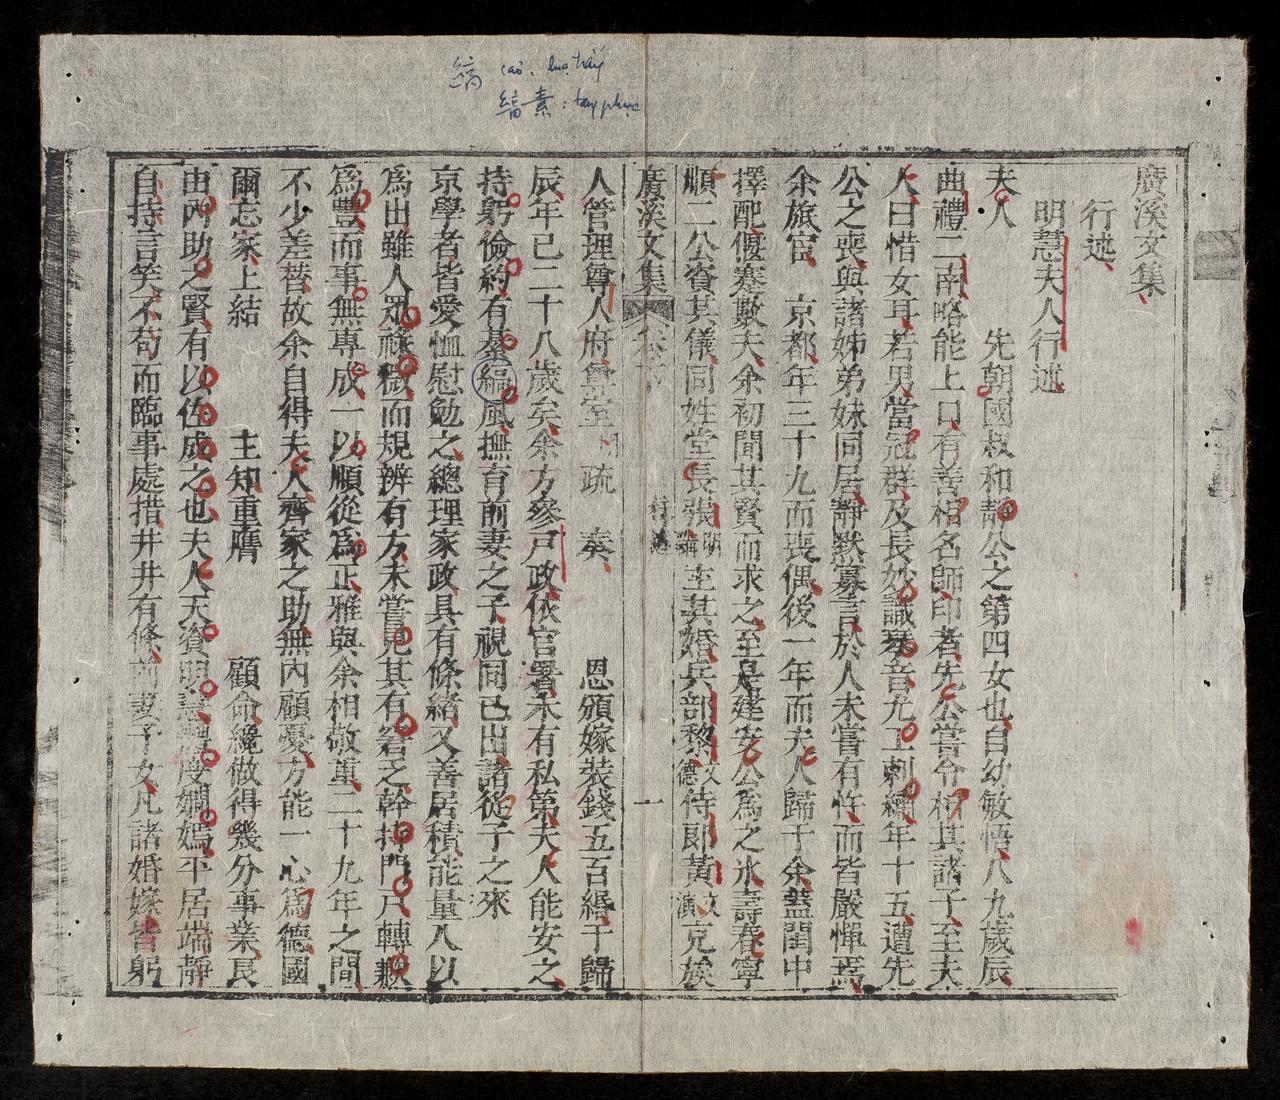 縞 cảo: lụa trắng
縞素: tang phục
廣溪文集
行述
明慧夫人行述
夫人 先朝國叔和靜公之第四女也自幼敏悟八九歲辰
曲禮二南略能上口有善相名師印者先公嘗令相其諸子至夫
人曰惜女耳若男當冠群及長妙識琴音尤工刺繡年十五遭先
公之喪與諸姊弟妹同居靜默寡言於人未嘗有忤而皆嚴憚焉
余旅宦 京都年三十九而喪偶後一年而夫人歸于余蓋閨中
擇配偃蹇歎夫余初聞其賢而求之至是建安公為之氷壽春寧
順二公資其儀同姓堂長張 主其婚兵部黎 德侍郎黃 演克族
廣溪文集 行述 一
人管理尊人府堂 疏 奏 恩頒嫁裝錢五百緡于歸
辰年已二十八歲矣余方參戶政依官署未有私第夫人能安之
持躬儉約有綦縞風撫育前妻之子視同己出諸從子之來
京學者皆愛恤慰勉之總理家政具有條緒又善居積能量入以
為出雖人眾祿微而規辨有方未嘗見其有窘乏幹持門戶轉歉
為豐而事無專成一以順從為正雅與余相敬重二十九年之間
不少差替故余自得夫人齊家之助無內顧憂方能一心為德國
爾忘家上結 主知重膺 顧命纔做得幾分事業良
由內助之賢有以佐成之也夫人天資明慧 度嫻嫣平居端靜
自持言笑不苟而臨事處措井井有條前妻子女凡諸婚嫁皆躬